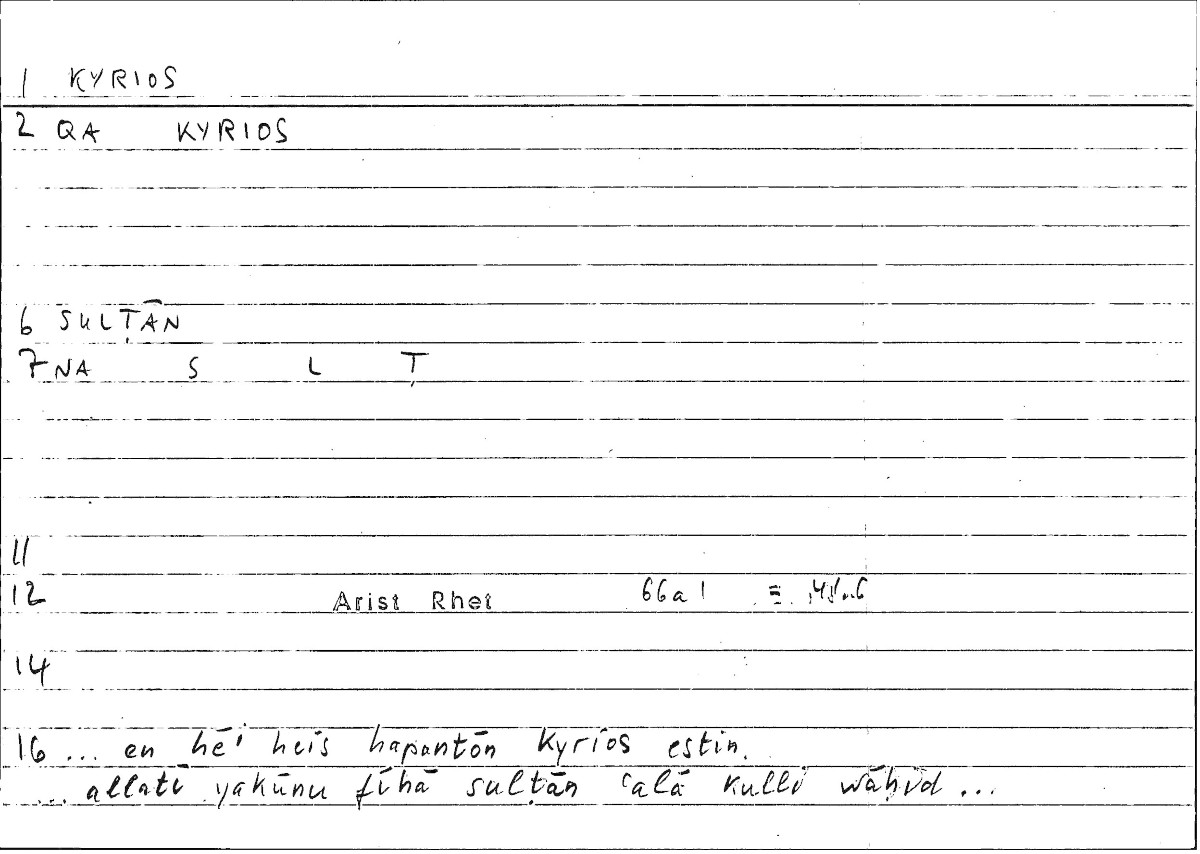 1 KYRIOS
2 QA KYRIOS
6 SULṬĀN
7 NA S L Ṭ
11
12 Arist Rhet 66a1 =
14
16 ... en hē' heis hapantōn kyrios estin.
... allatī yakūnu fīhā sulṭān ʿalā kulli wāḥid ...